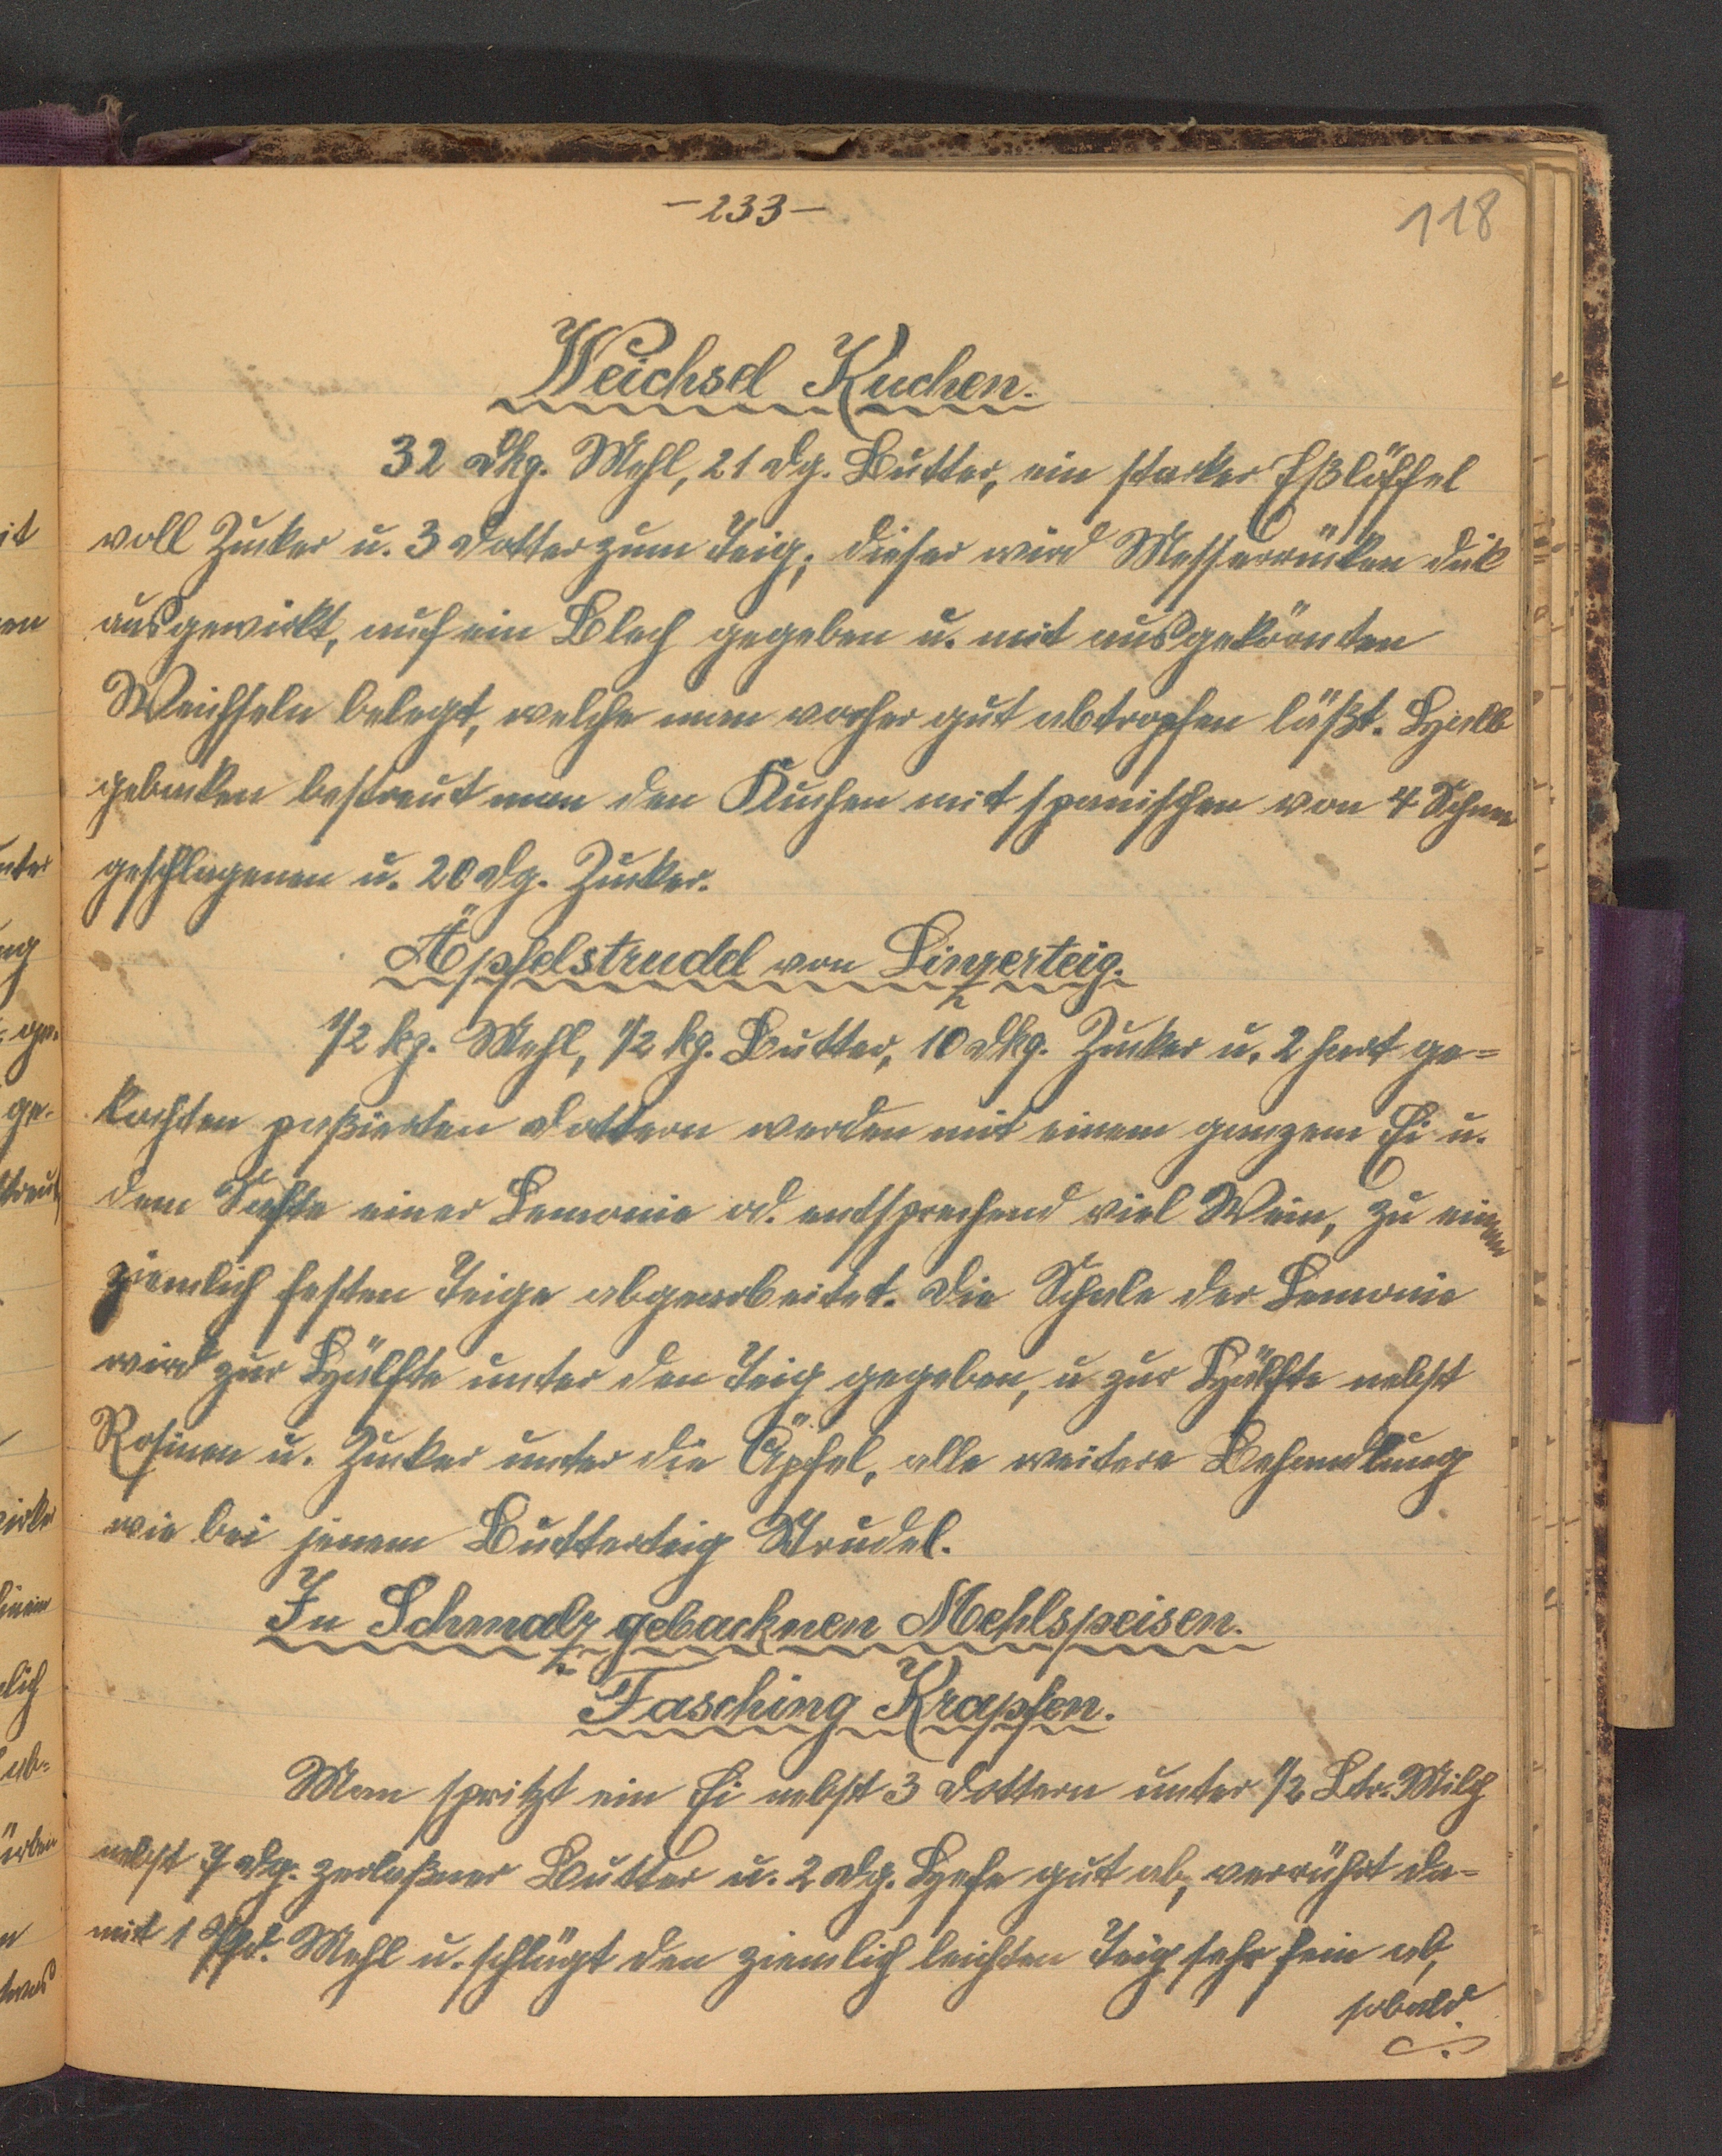 -233-
118
Weichsel Kuchen.
32 dkg. Mehl, 21 dg. Butter, ein starker Eßlöffel
voll Zucker u. 3 Dotter zum Teig; dieser wird Messerrücken dick
ausgewirkt, auf ein Blech gegeben u. mit ausgekörnten
Weichseln belegt, welche man vorher gut abtropfen läßt. Halb
gebacken bestreut man den Kuchen mit spanischen von 4 Schnee
geschlagenen u. 20 dg. Zucker.
Äpfelstrudel von Linzerteig.
1/2 kg. Mehl, 1/2 kg. Butter, 10 dkg. Zucker u. 2 hart ge=
kochten paßierten Dottern werden mit einem ganzem Ei u.
dem Safte einer Lemonie od. entsprechend viel Wein, zu einem
ziemlich festen Teige abgearbeitet. Die Schale der Lemonie
wird zur Hälfte unter den Teig gegeben, u zur Hälfte nebst
Rosinen u. Zucker unter die Äpfel, alle weitere Behandlung
wie bei jenem Butterteig Strudel.
In Schmalz gebacknen Mehlspeisen.
Fasching Krapfen.
Man spritzt ein Ei nebst 3 Dottern unter 1/2 Ltr. Milch
nebst 7 dg. zerlaßner Butter u. 2 dg. Hefe gut ab, verrührt da-
mit 1 Pfd. Mehl u. schlägt den ziemlich leichten Teig sehr fein ab,
sobald